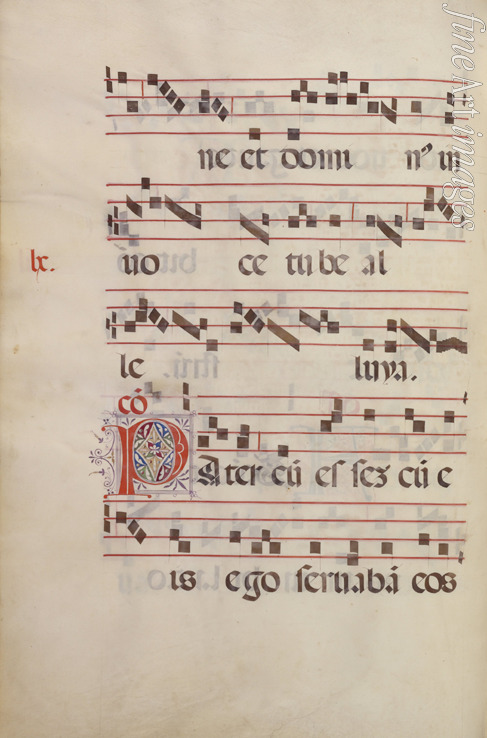 ne et domi n⁹ in
lx. uo ce tube al
le luya.
cō
Pater cū es sez cū e
is ego seruabā eos
fine art images